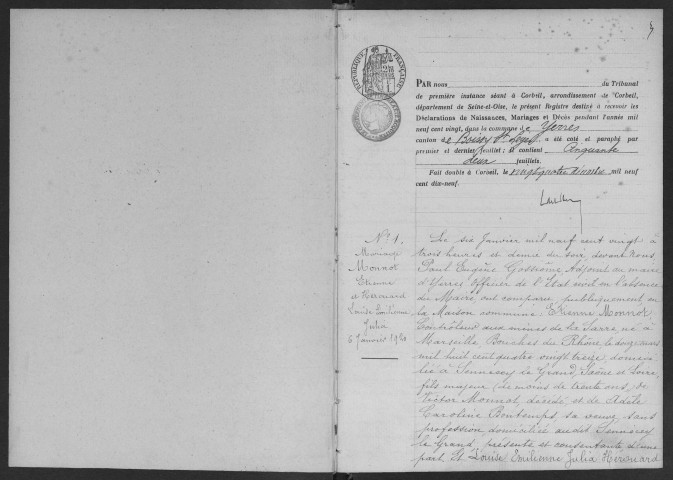 RÉPUBLIQUE FRANÇAISE
PAR nous du Tribunal
de première instance séant à Corbeil, arrondissement de Corbeil,
département de Seine-et-Oise, le présent Registre destiné à recevoir les
Déclarations de Naissances, Mariages et Décès pendant l'année mil
neuf cent vingt, dans la commune de Yerres
canton de Boissy St Léger a été coté et paraphé par
premier et dernier feuillet; il contient Cinquante
deux feuillets.
Fait double à Corbeil, le vingtquatre décembre mil neuf
cent dix-neuf.
No 1.
Mariage
Monnot
Etienne
et Herouard
Louise Emilienne
Julia
6 Janvier 1920
Le six Janvier mil neuf cent vingt à
trois heures et demie du soir devant Nous
Paul Eugène Gossiôme, Adjoint au maire
d'Yerres Officier de l'Etat civil en l'absence
du Maire, ont comparu publiquement en
la Maison commune, Etienne Monnot
Contrôleur aux mines de la Sarre, né à
Marseille Bouches du Rhône, le douze mars
mil huit cent quatre vingt treize, domici-
lié à Sennecey le Grand, Saône et Loire
fils majeur de moins de trente ans, de
Victor Monnot, décédé, et de Adèle
Caroline Bontemps sa veuve, sans
profession domiciliée audit Sennecey
le Grand, présente et consentante d'une
part. Et Louise Emilienne Julia Herouard